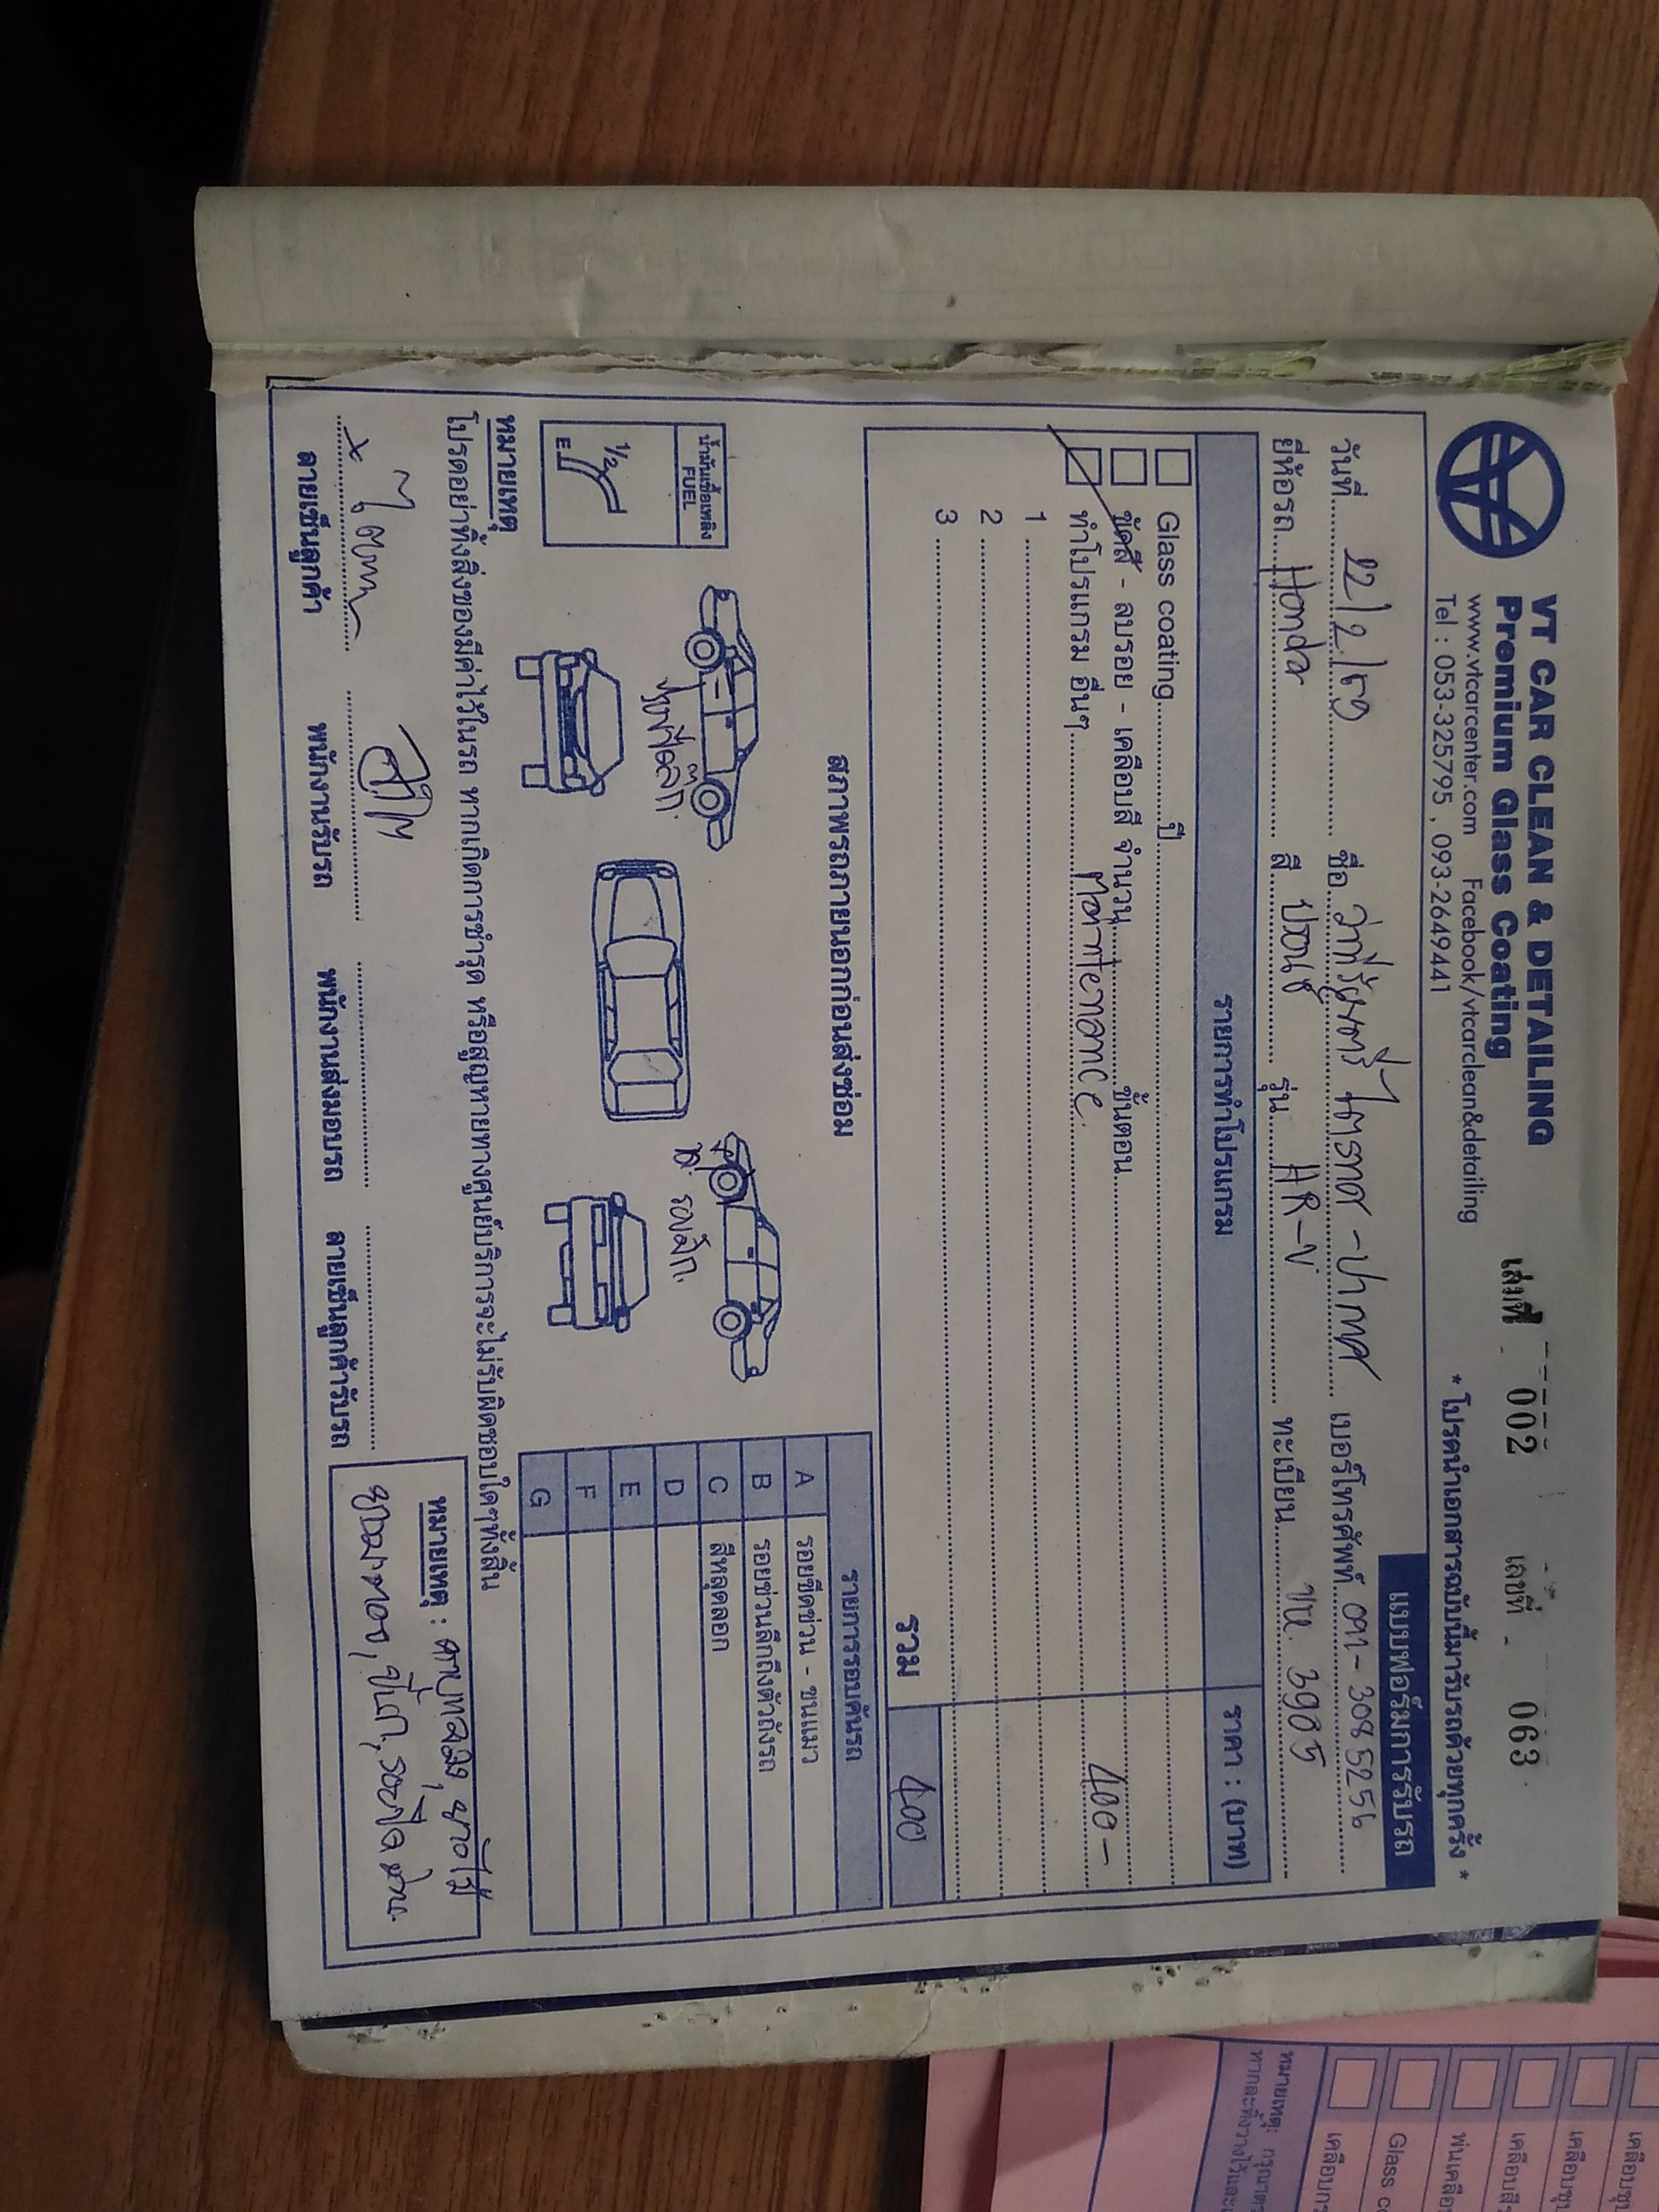 VT CAR CLEAN & DETAILING
Premium Glass Coating
www.vtcarcenter.com Facebook/vtcarclean&detailing
Tel : 053-325795 , 093-2649441
เล่มที่ 002 เลขที่ 063
* โปรดนำเอกสารฉบับนี้มารับรถด้วยทุกครั้ง *
แบบฟอร์มการรับรถ
วันที่ 22/2/69 ชื่อ ว่าที่ร้อยตรี เบอร์โทรศัพท์ 091-3085256
ยี่ห้อรถ Honda สี บรอนซ์ รุ่น HR-V ทะเบียน ขน. 3905
รายการทำโปรแกรม ราคา : (บาท)
Glass coating ปี
ขัดสี - ลบรอย - เคลือบสี จำนวน ขั้นตอน
ทำโปรแกรม อื่นๆ Maintenance. 400-
1
2
3
รวม 400
สภาพรถภายนอกก่อนส่งซ่อม
รายการรอบคันรถ
A รอยขีดข่วน - ขนแมว
B รอยข่วนลึกถึงตัวถังรถ
C สีหลุดลอก
D
E
F
G
น้ำมันเชื้อเพลิง
FUEL
1/2
E
หมายเหตุ
โปรดอย่าทิ้งสิ่งของมีค่าไว้ในรถ หากเกิดการชำรุด หรือสูญหายทางศูนย์บริการจะไม่รับผิดชอบใดๆทั้งสิ้น
หมายเหตุ :
ลายเซ็นลูกค้า พนักงานรับรถ พนักงานส่งมอบรถ ลายเซ็นลูกค้ารับรถ
หมายเหตุ: กรุณาตร
หากละทิ้งวางไว้และเ
Glass c